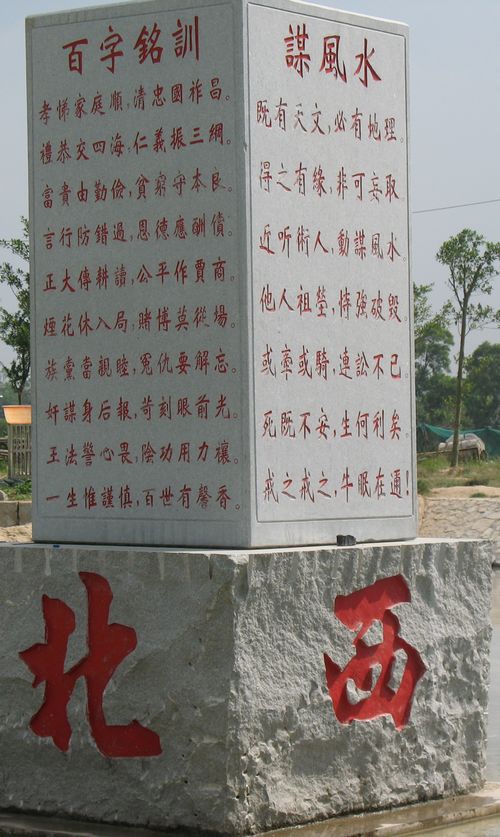 百字銘訓
孝悌家庭順,清忠國祚昌。
禮恭交四海,仁義振三綱。
富貴由勤儉,貧窮守本良。
言行防錯過,恩德應酬償。
正大傳耕讀,公平作賈商。
煙花休入局,賭博莫從場。
族黨當親睦,冤仇要解忘。
奸謀身后報,苛刻眼前光。
王法警心畏,陰功用力禳。
一生惟謹慎,百世有馨香。
謀風水
既有天文,必有地理。
得之有緣,非可妄取。
近听術人,動謀風水。
他人祖塋,恃強破毀。
或塟或騎,連訟不已。
死既不安,生何利矣。
戒之戒之,牛眠在通!
北
西